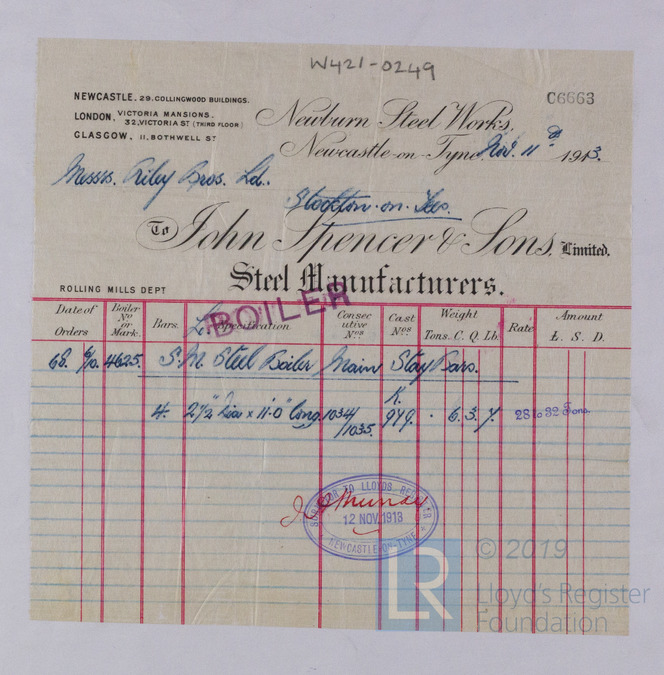 W421-0249
C6663
NEWCASTLE. 29. COLLINGWOOD BUILDINGS.
LONDON. VICTORIA MANSIONS. 32, VICTORIA ST (THIRD FLOOR)
GLASGOW. 11. BOTHWELL ST
Newburn Steel Works,
Newcastle-on-Tyne Nov. 11th 1913.
Messrs. Riley Bros. Ld.
Stockton-on-Tees.
To John Spencer & Sons, Limited.
Steel Manufacturers.
ROLLING MILLS DEPT
BOILER
Date of Orders Boiler No or Mark. Bars. Specification Consecutive Nos Cast Nos. Weight Tons. C. Q. Lb. Rate Amount £. S. D.
68. 6/10. 4625. S.M. Steel Boiler Main Stay Bars.
K.
4. 2½" Dia x 11'.0" long. 1034/1035. 979. . 6. 3. 7. 28 to 32 Tons.
SURVEYOR TO LLOYDS REGISTER
12 NOV. 1913
NEWCASTLE-ON-TYNE
LR
© 2019
Lloyd's Register
Foundation